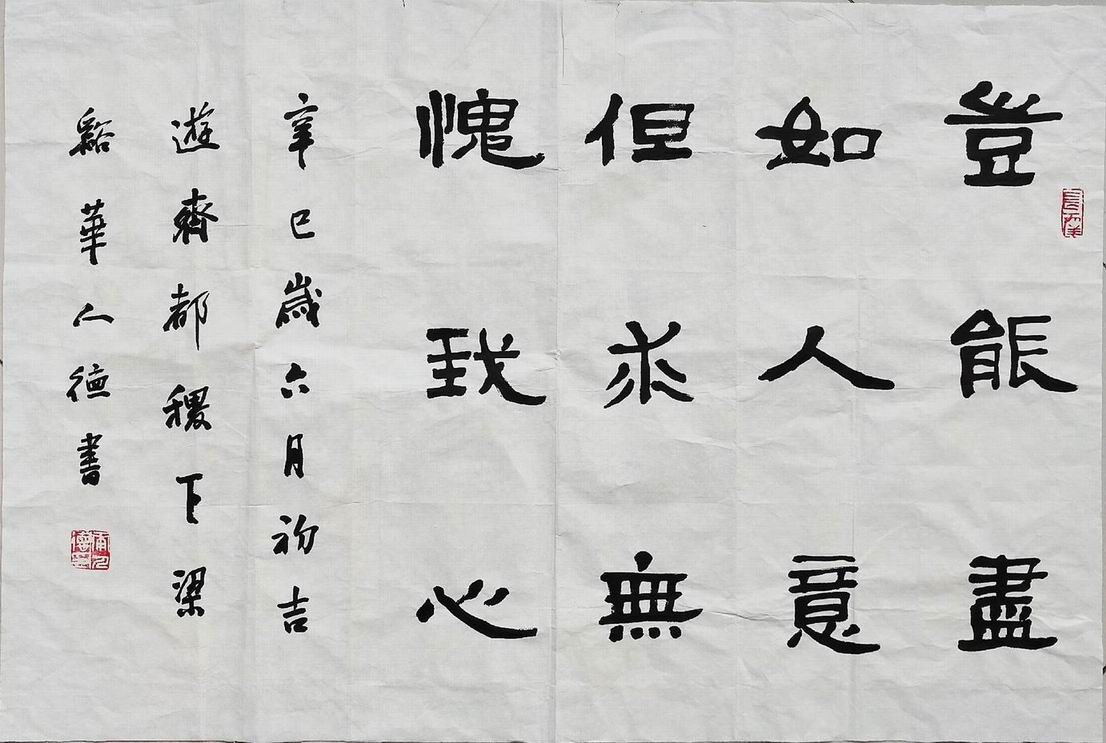 豈能盡
如人意
但求無
愧我心
辛巳歲六月初吉
遊齊都稷下梁
谿華人德書